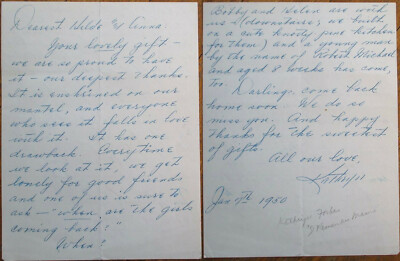 Dearest Hilde & Anna:
Your lovely gift -
we are so proud to have
it - our deepest thanks.
It is enshrined on our
mantel, and everyone
who sees it falls in love
with it. It has one
drawback. Everytime
we look at it, we get
lonely for good friends
and one of us is sure to
ask - "when are the girls
coming back?"
When?
Bobby and Helen are with
us (downstairs, we built
on a cute knotty pine kitchen
for them) and a young man
by the name of Robert Michael
and aged 8 weeks has come,
too.
Darlings, come back
home soon. We do so
miss you. And happy
thanks for the sweetest
of gifts.
All our love,
Kathryn
Jan 7th 1950
Kathryn Forbes